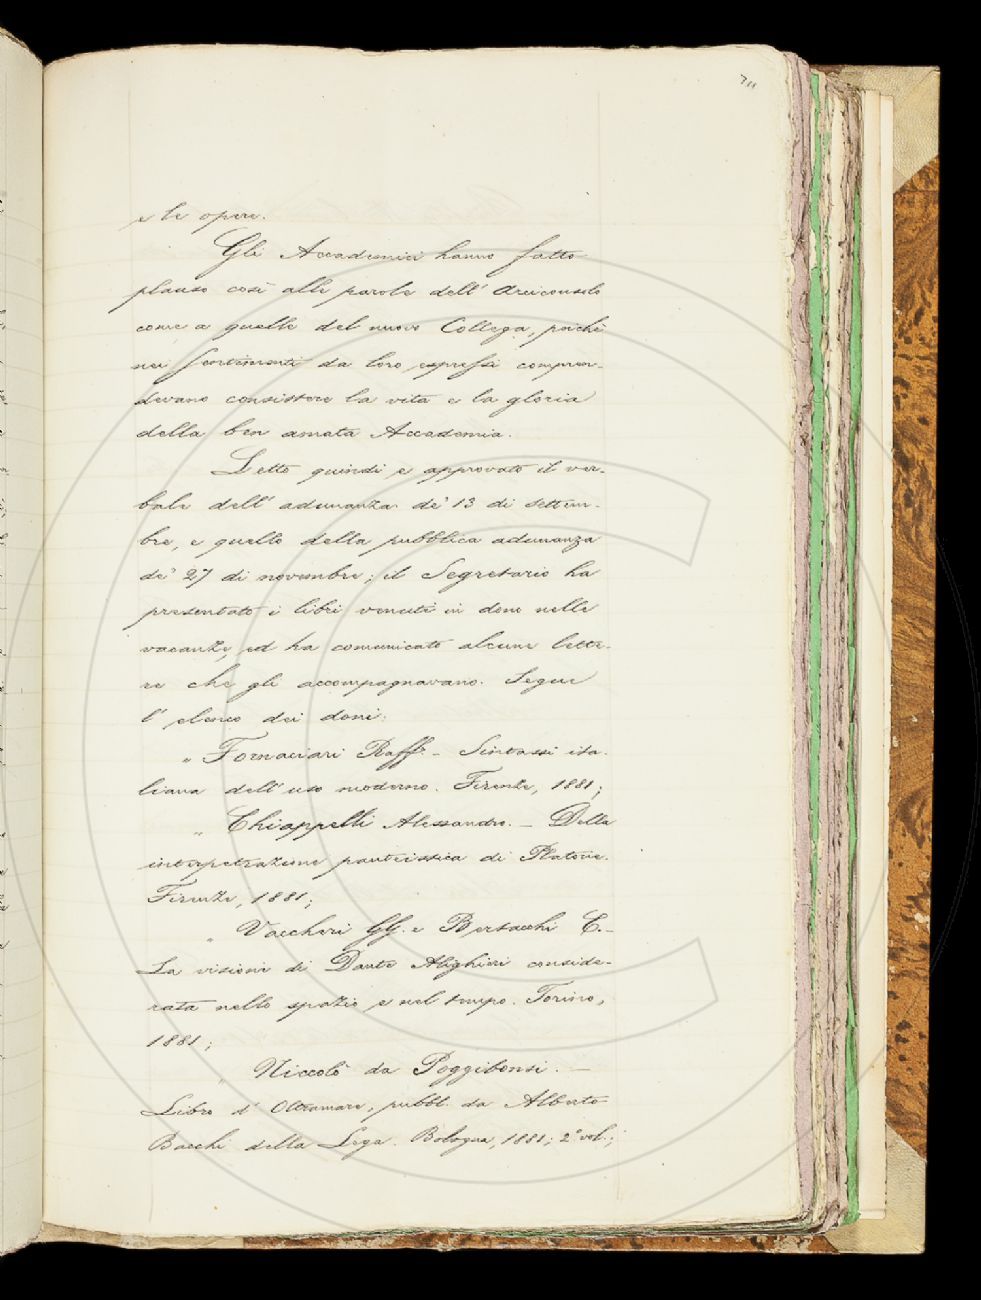 311
e le opere.
Gli Accademici hanno fatto
plauso così alle parole dell' Arciconsolo
come a quelle del nuovo Collega, poichè
nei sentimenti da loro espressi compren-
devano consistere la vita e la gloria
della ben amata Accademia.
Letto quindi e approvato il ver-
bale dell' adunanza de' 13 di settem-
bre, e quello della pubblica adunanza
de' 27 di novembre; il Segretario ha
presentato i libri venuti in dono nelle
vacanze, ed ha comunicato alcune lette-
re che gli accompagnavano. Segue
l' elenco dei doni:
„ Fornaciari Raff. - Sintassi ita-
liana dell' uso moderno. Firenze, 1881;
„ Chiappelli Alessandro. - Della
interpetrazione panteistica di Platone.
Firenze, 1881;
„ Vaccheri GG. e Bertacchi C. -
La visione di Dante Alighieri conside-
rata nello spazio e nel tempo. Torino,
1881;
„ Niccolò da Poggibonsi. -
Libro d' Oltramare, pubbl. da Alberto
Bacchi della Lega. Bologna, 1881; 2° vol.;